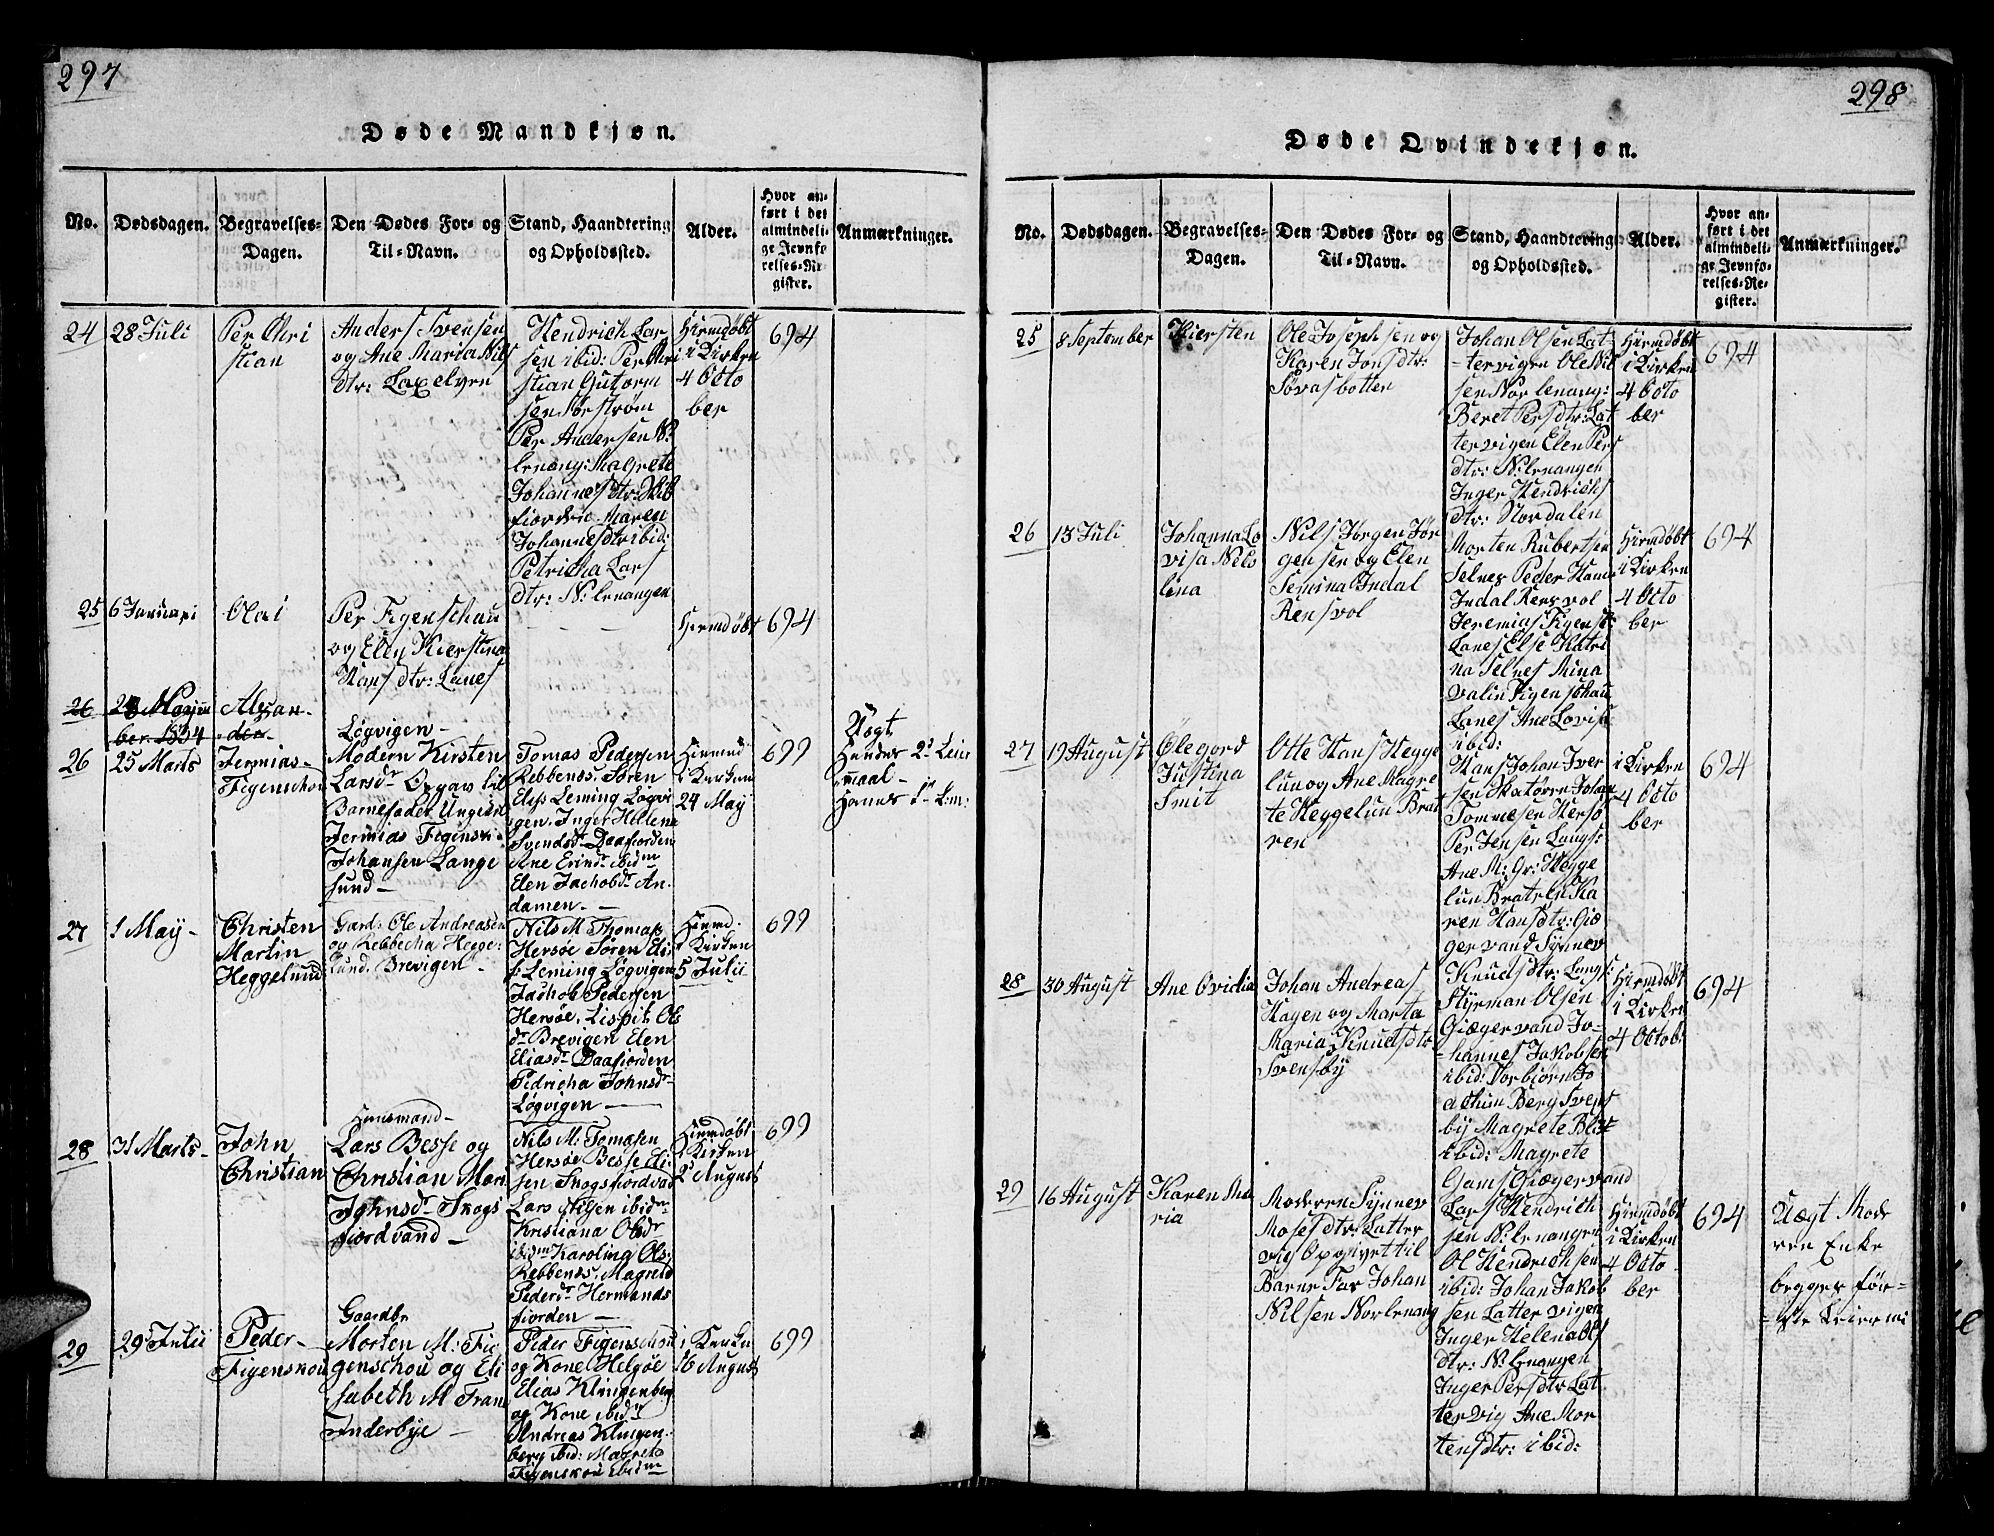 297
Døde Mandkjøn.
No.
Dødsdagen.
Begravelses-
Dagen.
Den Dødes For- og
Til-Navn.
Stand, Haandtering
og Opholdssted.
Alder.
Hvor an-
ført i det
almindeli-
ge Jevnfø-
relses-Re-
gister.
Anmærkninger.
24
28 Juli
Per Chri
stian
Anders Svensen
og Ane Maria Nils
dtr: Laxelven
Hendrich Lar
sen ibid: Per Chri
stian Gutorm
sen Sør strøm
Per Andersen N:
lenang: Magrete
Johannes dtr: Kil
fiordeid Maren
Johannesdtr ibid:
Petricha Lars
dtr: N: lenangen
Hiemdøbt
i Kirken
4 Octo
ber
694
25
6 Januari
Olai
Per Figenschau
og Elen Kierstina
Hans dtr: Lanes
Hiemdøbt
694
26
ber 1834
Løgvigen -
26
25 Marts
Jermias -
Figenschou
Modern Kirsten
Larsdr Opgav til
Barnefader Ungkrl
Jermias Figensk:
Johansen Lange
sund -
Tomas Pedersen
Rebbenes. Søren
Eliss Leming Løgvi
gen. Inger Hellena
Svendsdr Daafjorden
Ane Erind. ibidm
Elen Jachobdr An.
damen. -
Hiemd
i Kirken
24 May
699
Uægt
Hendes 2d Leier
maal -
Hannes 1r Lem:
27
1 May -
Christen
Martin
Heggelund
Gard: Ole Andreasen
og Rebbecha Hegge-
lund. Brevigen -
Nils M. Thomass
Hersøe Søren Eli
s: Leming Løgvigen
Jachob Pedersen
Hersøe. Lispit Ols
dr Brevigen Elen
Eliasdr Daafjorden
Pedricha Johnsdr
Løgvigen -
Hiemd.
i Kirken
5 Julii
699
28
31 Marts -
John
Christian
Huusmand -
Lars Besse og
Christian Mari
Johnsdr Skogs
fjordvand -
Nils M: Tomasen
Hersøe Besse Eli
sen Skogsfjordvad
Lars Nilsen ibidm
Kristiana Olsdr
ibidm Karoling Ols
Rebbenes. Magreta
Pedersdr Hermands
fjorden -
Hiemdøbt
i Kirken
2d August
699
29
29 Julii
Peder -
Figenskou
Gaardbr
Morten M: Fi-
genschou og Eli
sabeth M Fram
Finderbye -
Peder Figenschou
og Kone Helgøe
Elias Klingenberg
og Kone ibidm
Andreas Klingen-
berg ibid: Magreta
Figenskou Ibidm
i Kirken
16 August
699
298
Døde Qvindekjøn.
No.
Dødsdagen.
Begravelses-
Dagen.
Den Dødes For- og
Til-Navn.
Stand, Haandtering
og Opholdssted.
Alder.
Hvor an-
ført i det
almindeli-
ge Jevnfø-
relses-Re-
gister.
Anmærkninger.
25
8 September
Kiersten
Ole Josephsen og
Karen Jonsdtr:
Søvasbotten
Johan Olsen Lat-
-tervigen Ole Nil
sen Nor lenang:
Beret Persdtr: Lat
tervigen Elen Pers
dtr: N: lenangen
Inger Hendrichs
dtr: Nordalen
Hiemdøbt
i Kirken
4 Octo
ber
694
26
13 Juli
Johanna Lo
visa Nels
lina
Nils Jørgen Jør
gensen og Elen
Semina Indal
Rensvol
Morten Rubertsen
Selnes Peder Hans
Indal Rensvol
Jeremias Figensk:
Lanes Else Katri
na Selnes Mina
Valin Figenschau
Lanes Ane Lovis
ibid:
Hiemdøbt
i Kirken
4 Octo
ber
694
27
19 August
Olegord
Justina
Smit
Otte Hans Hegge
lun og Ane Magre
te Heggelun Brat
ren
Hans Johan Iver
sen Skatøren Johan
Tommesen Hersø
Per Jensen Langs:
Ane M: Gr: Hegge
lun Bratren Ka
ren Hansdtr: Giæ
gervand Synnev
Knudsdtr: Langs:
i Kirken
4 Octo
ber
694
28
30 August
Ane Ovidia
Johan Andreas
Hagen og Marta
Maria Knudsdtr
Svensby
Styrman Olsen
Giægervand Jo-
-hannes Jakobsen
ibid: Torbiørn Jo
achim Berg Svens
by Magrete Blix
ibid: Magrete
Gams Giægervand
Hiemdøbt
i Kirken
4 Octob:
694
29
16 August
Karen Ma
ria
Moderen Synnev
Mosesdtr: Latter
vig Opgivet til
Barne Far Johan
Nilsen Norlenang
Lars Hendrich
sen N: lenangen
Ol Hendrichsen
ibid: Johan Jakob
sen Latter vigen
Inger Helena Ols
dtr: N: lenangen
Inger Persdtr Lat
ter vig Ane Mor
tensdtr: ibid:
Hiemdøbt
i Kirken
4 Octo
ber
694
Uægt Mode
ren Enke
begges før-
-ste Leierm